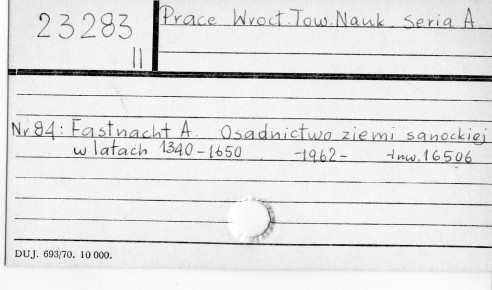 23283
II
Prace Wrocł. Tow. Nauk. Seria A
Nr 84: Fastnacht A. Osadnictwo ziemi sanockiej
w latach 1340-1650 -1962- inw. 16506
DUJ. 693/70. 10 000.